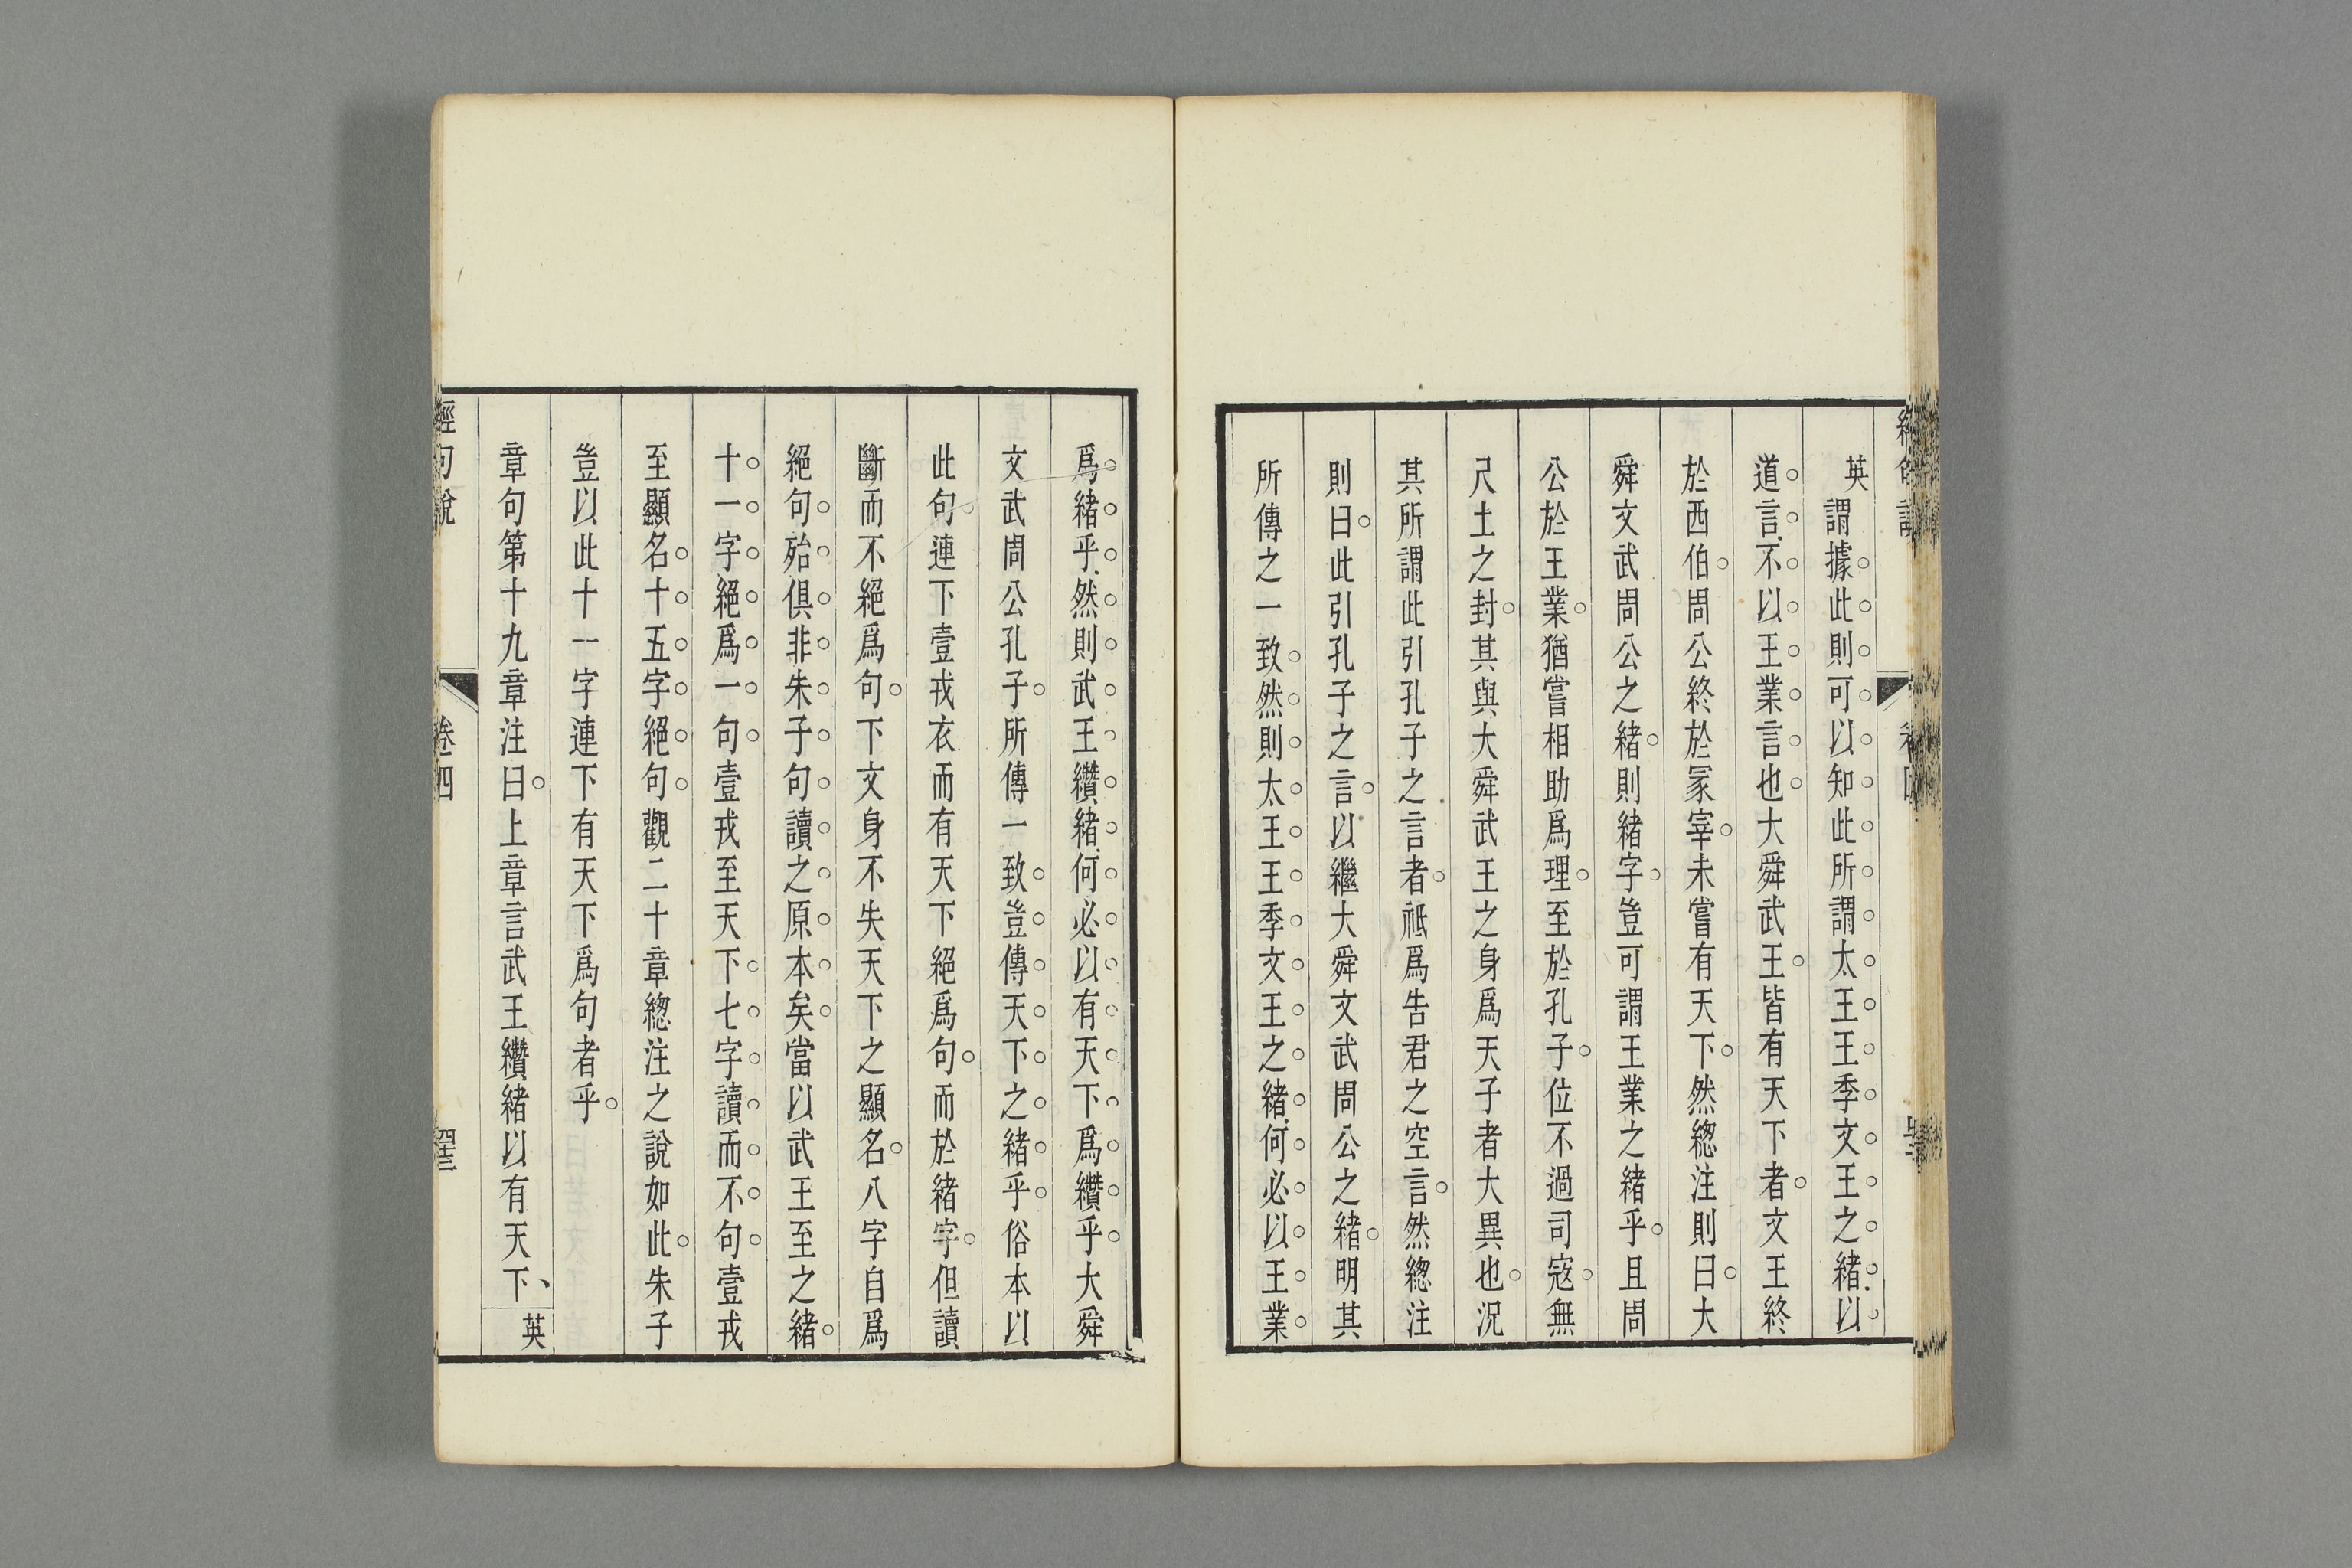 英謂據此則可以知此所謂太王王季文王之緒以
道言不以王業言也大舜武王皆有天下者文王終
於西伯周公終於冢宰未嘗有天下然緫注則曰大
舜文武周公之緒則緒字豈可謂王業之緒乎且周
公於王業猶嘗相助爲理至於孔子位不過司寇無
尺土之封其與大舜武王之身爲天子者大異也況
其所謂此引孔子之言者祗爲告君之空言然緫注
則曰此引孔子之言以繼大舜文武周公之緒明其
所傳之一致然則太王王季文王之緒何必以王業
爲緒乎然則武王纘緒何必以有天下爲纘乎大舜
文武周公孔子所傳一致豈傳天下之緒乎俗本以
此句連下壹戎衣而有天下絕爲句而於緒字但讀
斷而不絕爲句下文身不失天下之顯名八字自爲
絕句殆俱非朱子句讀之原本矣當以武王至之緒
十一字絕爲一句壹戎至天下七字讀而不句壹戎
至顯名十五字絕句觀二十章緫注之說如此朱子
豈以此十一字連下有天下爲句者乎
章句第十九章注曰上章言武王纘緒以有天下、英
經句說
卷四